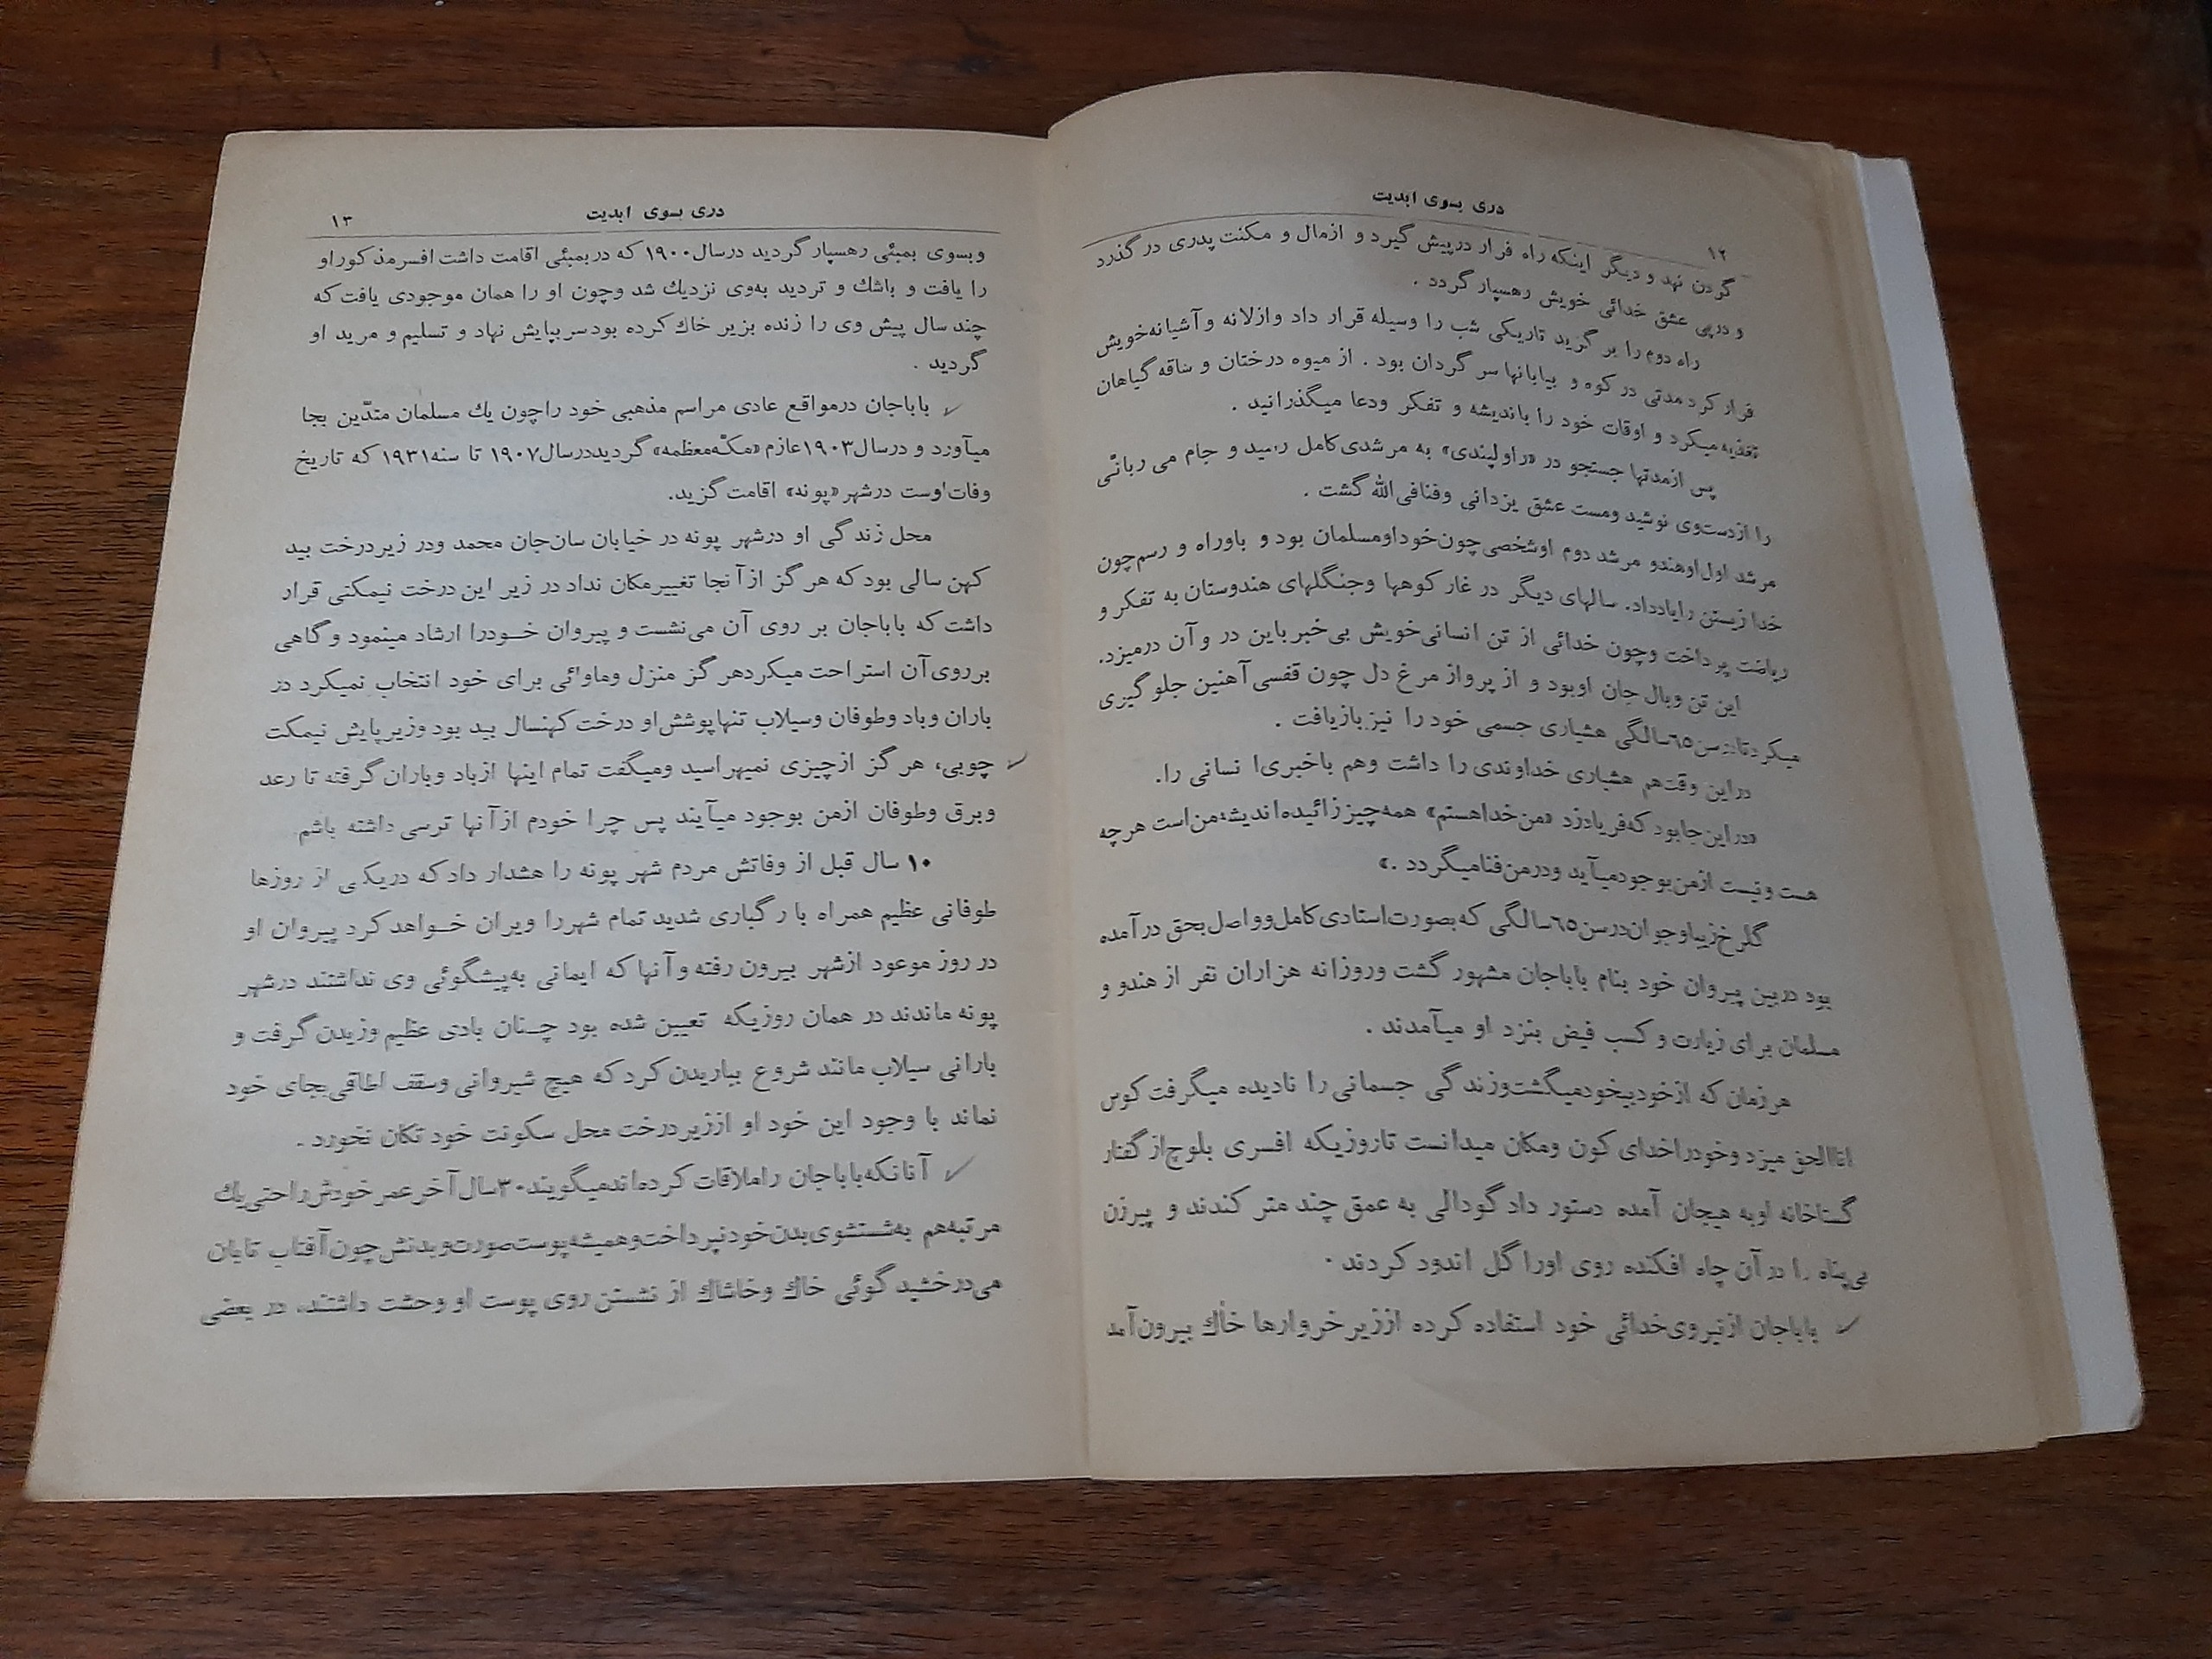 دری بسوی ابدیت
۱۲
گردن نهد و دیگر اینکه راه فرار درپیش گیرد و ازمال و مکنت پدری در گذرد
و درپی عشق خدائی خویش رهسپار گردد .
راه دوم را بر گزید تاریکی شب را وسیله قرار داد وازلانه و آشیانه خویش
فرار کرد مدتی در کوه و بیابانها سر گردان بود . از میوه درختان و ساقه گیاهان
تغذیه میکرد و اوقات خود را باندیشه و تفکر ودعا میگذرانید .
پس ازمدتها جستجو در «راولپندی» به مرشدی کامل رسید و جام می ربانّی
را ازدست وی نوشید ومست عشق یزدانی وفنافی الله گشت .
مرشد اول اوهندو مرشد دوم اوشخصی چون خوداومسلمان بود و باوراه و رسم چون
خدا زیستن رایادداد. سالهای دیگر در غار کوهها وجنگلهای هندوستان به تفکر و
ریاضت پرداخت وچون خدائی از تن انسانی خویش بی خبر باین در و آن درمیزد.
این تن وبال جان اوبود و از پرواز مرغ دل چون قفسی آهنین جلو گیری
میکردتادرسن ٦٥سالگی هشیاری جسمی خود را نیز بازیافت .
دراین وقت هم هشیاری خداوندی را داشت وهم باخبری انسانی را.
«دراین جابود که فریادزد «من خداهستم» همه چیز زائیده اندیشه من است هرچه
هست ونیست ازمن بوجودمیآید ودرمن فنامیگردد .»
گلرخ زیباوجوان درسن ٦٥سالگی که بصورت استادی کامل وواصل بحق در آمده
بود دربین پیروان خود بنام باباجان مشهور گشت وروزانه هزاران نفر از هندو و
مسلمان برای زیارت و کسب فیض بنزد او میآمدند .
هرزمان که ازخودبیخودمیگشت وزندگی جسمانی را نادیده میگرفت کوس
اناالحق میزد وخودراخدای کون ومکان میدانست تاروزیکه افسری بلوچ از گفتار
گستاخانه اوبه هیجان آمده دستور داد گودالی به عمق چند متر کندند و پیرزن
بی پناه را در آن چاه افکنده روی اورا گل اندود کردند .
باباجان ازنیروی خدائی خود استفاده کرده اززیر خروارها خاك بیرون آمد
دری بسوی ابدیت
۱۳
وبسوی بمبئی رهسپار گردید درسال ۱۹۰۰ که دربمبئی اقامت داشت افسرمذ کوراو
را یافت و باشك و تردید به وی نزدیك شد وچون او را همان موجودی یافت که
چند سال پیش وی را زنده بزیر خاك کرده بود سر بپایش نهاد و تسلیم و مرید او
گردید .
باباجان درمواقع عادی مراسم مذهبی خود راچون یك مسلمان متدّین بجا
میآورد و درسال۱۹۰۳عازم «مکّه معظمه» گردیددرسال۱۹۰۷ تا سنه۱۹۳۱ که تاریخ
وفات اوست درشهر «پونه» اقامت گزید.
محل زندگی او درشهر پونه در خیابان سان جان محمد ودر زیردرخت بید
کهن سالی بود که هر گز از آنجا تغییرمکان نداد در زیر این درخت نیمکتی قرار
داشت که باباجان بر روی آن می نشست و پیروان خــودرا ارشاد مینمود و گاهی
برروی آن استراحت میکردهر گز منزل وماوائی برای خود انتخاب نمیکرد در
باران وباد وطوفان وسیلاب تنهاپوشش او درخت کهنسال بید بود وزیرپایش نیمکت
چوبی، هر گز ازچیزی نمیهراسید ومیگفت تمام اینها ازباد وباران گرفته تا رعد
وبرق وطوفان ازمن بوجود میآیند پس چرا خودم ازآنها ترسی داشته باشم
۱۰ سال قبل از وفاتش مردم شهر پونه را هشدار داد که دریکی از روزها
طوفانی عظیم همراه با ر گباری شدید تمام شهررا ویران خــواهد کرد پیروان او
در روز موعود ازشهر بیرون رفته و آنها که ایمانی به پیشگوئی وی نداشتند درشهر
پونه ماندند در همان روزیکه تعیین شده بود چــنان بادی عظیم وزیدن گرفت و
بارانی سیلاب مانند شروع بباریدن کرد که هیچ شیروانی وسقف اطاقی بجای خود
نماند با وجود این خود او اززیردرخت محل سکونت خود تکان نخورد .
آنانکه باباجان راملاقات کرده اندمیگویند۳۰سال آخر عمر خودش راحتی یك
مرتبه هم به شستشوی بدن خودنپرداخت وهمیشه پوست صورت وبدنش چون آفتاب تابان
می درخشید گوئی خاك وخاشاك از نشستن روی پوست او وحشت داشتند، در بعضی